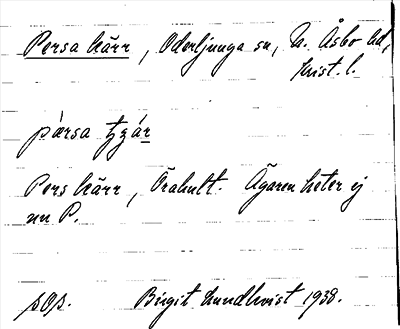 Persa kärr, Oderljunga sn, N. Åsbo hd,
Krist. l.
pärsa tjzár
Pers kärr, Örahult. Ägaren heter ej
nu P.
sOp. Birgit Lundkvist 1938.